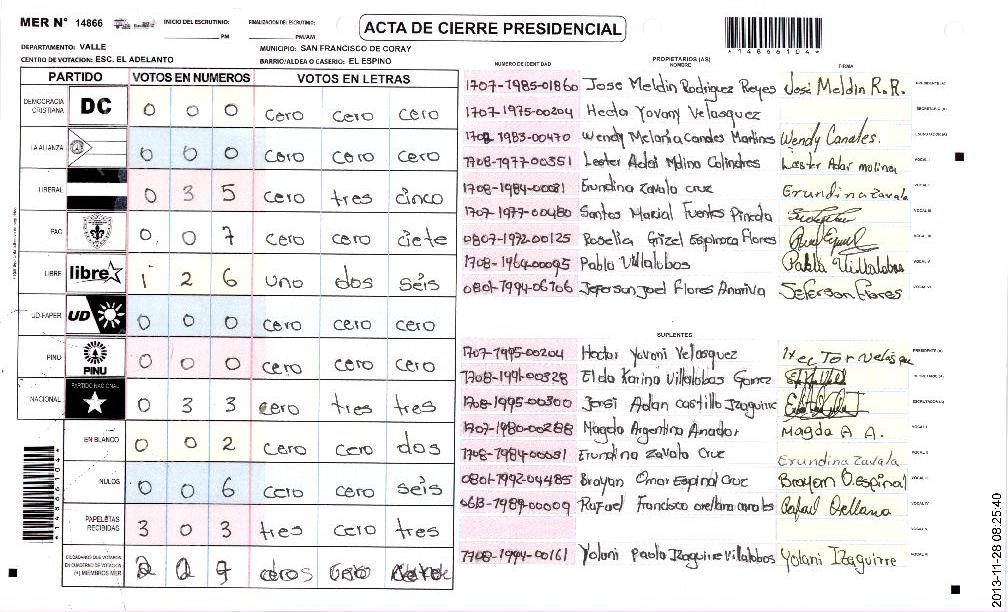 MER N° 14866
INICIO DEL ESCRUTINIO: PM
FINALIZACION DEL ESCRUTINIO: PM/AM
ACTA DE CIERRE PRESIDENCIAL
*14866104*
DEPARTAMENTO: VALLE
MUNICIPIO: SAN FRANCISCO DE CORAY
CENTRO DE VOTACION: ESC. EL ADELANTO
BARRIO/ALDEA O CASERIO: EL ESPINO
PARTIDO VOTOS EN NUMEROS VOTOS EN LETRAS
DEMOCRACIA CRISTIANA DC 0 0 0 cero cero cero
LA ALIANZA 0 0 0 cero cero cero
LIBERAL 0 3 5 cero tres cinco
PAC 0 0 7 cero cero ciete
LIBRE libre 1 2 6 uno dos séis
UD-FAPER UD 0 0 0 cero cero cero
PINU PINU 0 0 0 cero cero cero
NACIONAL PARTIDO NACIONAL 0 3 3 cero tres tres
EN BLANCO 0 0 2 cero cero dos
NULOS 0 0 6 cero cero séis
PAPELETAS RECIBIDAS 3 0 3 tres cero tres
CIUDADANOS QUE VOTARON EN CUADERNO DE VOTACION (+) MIEMBROS MER 2 0 9
NUMERO DE IDENTIDAD PROPIETARIOS (AS) NOMBRE FIRMA
1707-1985-01860 Jose Meldin Rodriguez Reyes José Meldin R.R. PRESIDENTE (A)
1707-1975-00204 Hecto Yovany Velasquez SECRETARIO (A)
1702 1983-00470 Wendy Melania Canales Martines Wendy Canales. ESCRUTADOR (A)
1708-1977-00351 Lester Adai Molino Colindres Lester Adai molina VOCAL I
1708-1984-00031 Erundina Zavala cruz Erundina Zavala VOCAL II
1707-1977-00480 Santos Marial Fuentes Pineda VOCAL III
0807-1972-00125 Roselia Grizel Espinoza Flores VOCAL IV
1708-1964-00095 Pablo Villalobos Pablo Villalobos VOCAL V
0801-1994-06706 Jeferson Joel Flores Anariva Jeferson Flores VOCAL VI
SUPLENTES
1707-1995-00204 Hector Yovani Velasquez PRESIDENTE (A)
1708-1991-00328 Elda Karina Villalobos Gomez SECRETARIO (A)
1708-1995-00300 Jorsi Adan castillo Izaguirre ESCRUTADOR (A)
1707-1980-00288 Magda Argentina Amador Magda A A. VOCAL I
1708-1984-00031 Erundina Zavala Cruz Erundina Zavala VOCAL II
0801-1992-04485 Brayan Omar Espinal Cruz Brayan O.espinal VOCAL III
0613-1989-00009 Rafael Francisco orellana canales Rafael Orellana VOCAL IV
VOCAL V
1708-1994-00161 Yolani Paola Izaguirre Villalobos Yolani Izaguirre VOCAL VI
*14866104*
2013-11-28 08:25:40